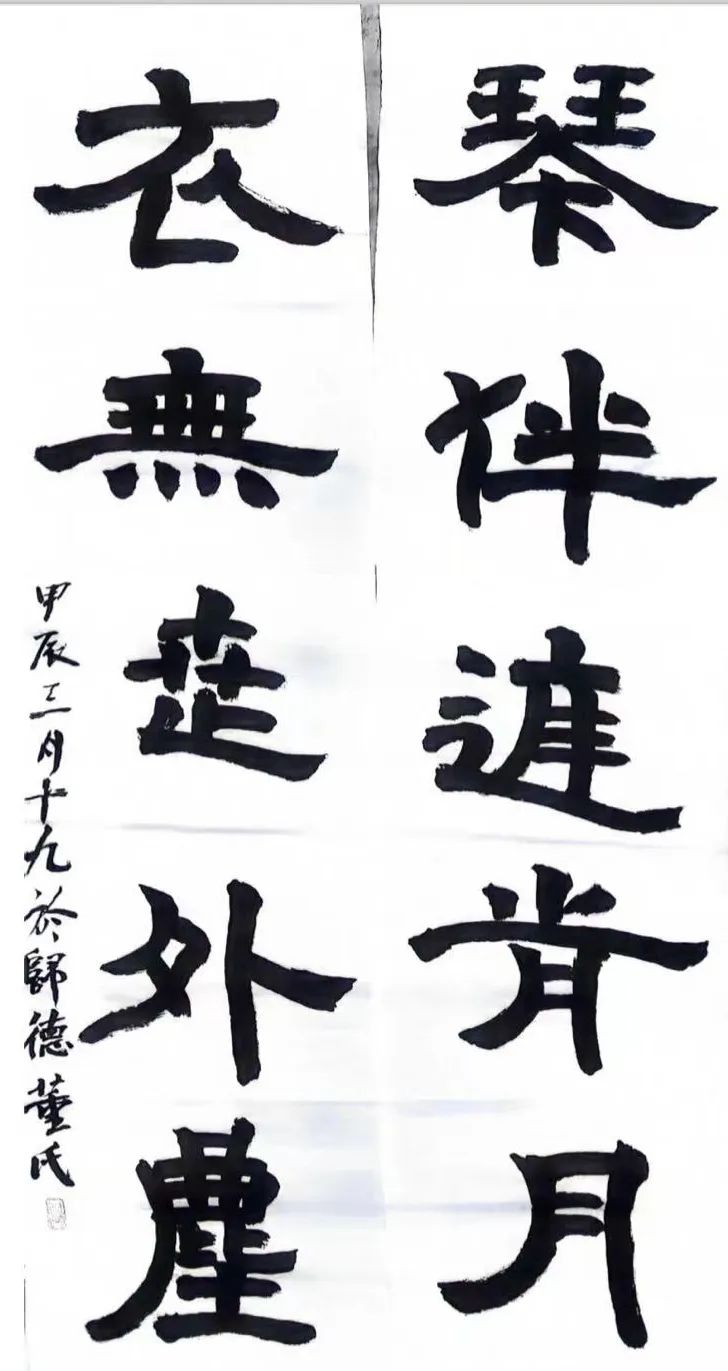 琴伴庭前月
衣無世外塵
甲辰三月十九於歸德董氏